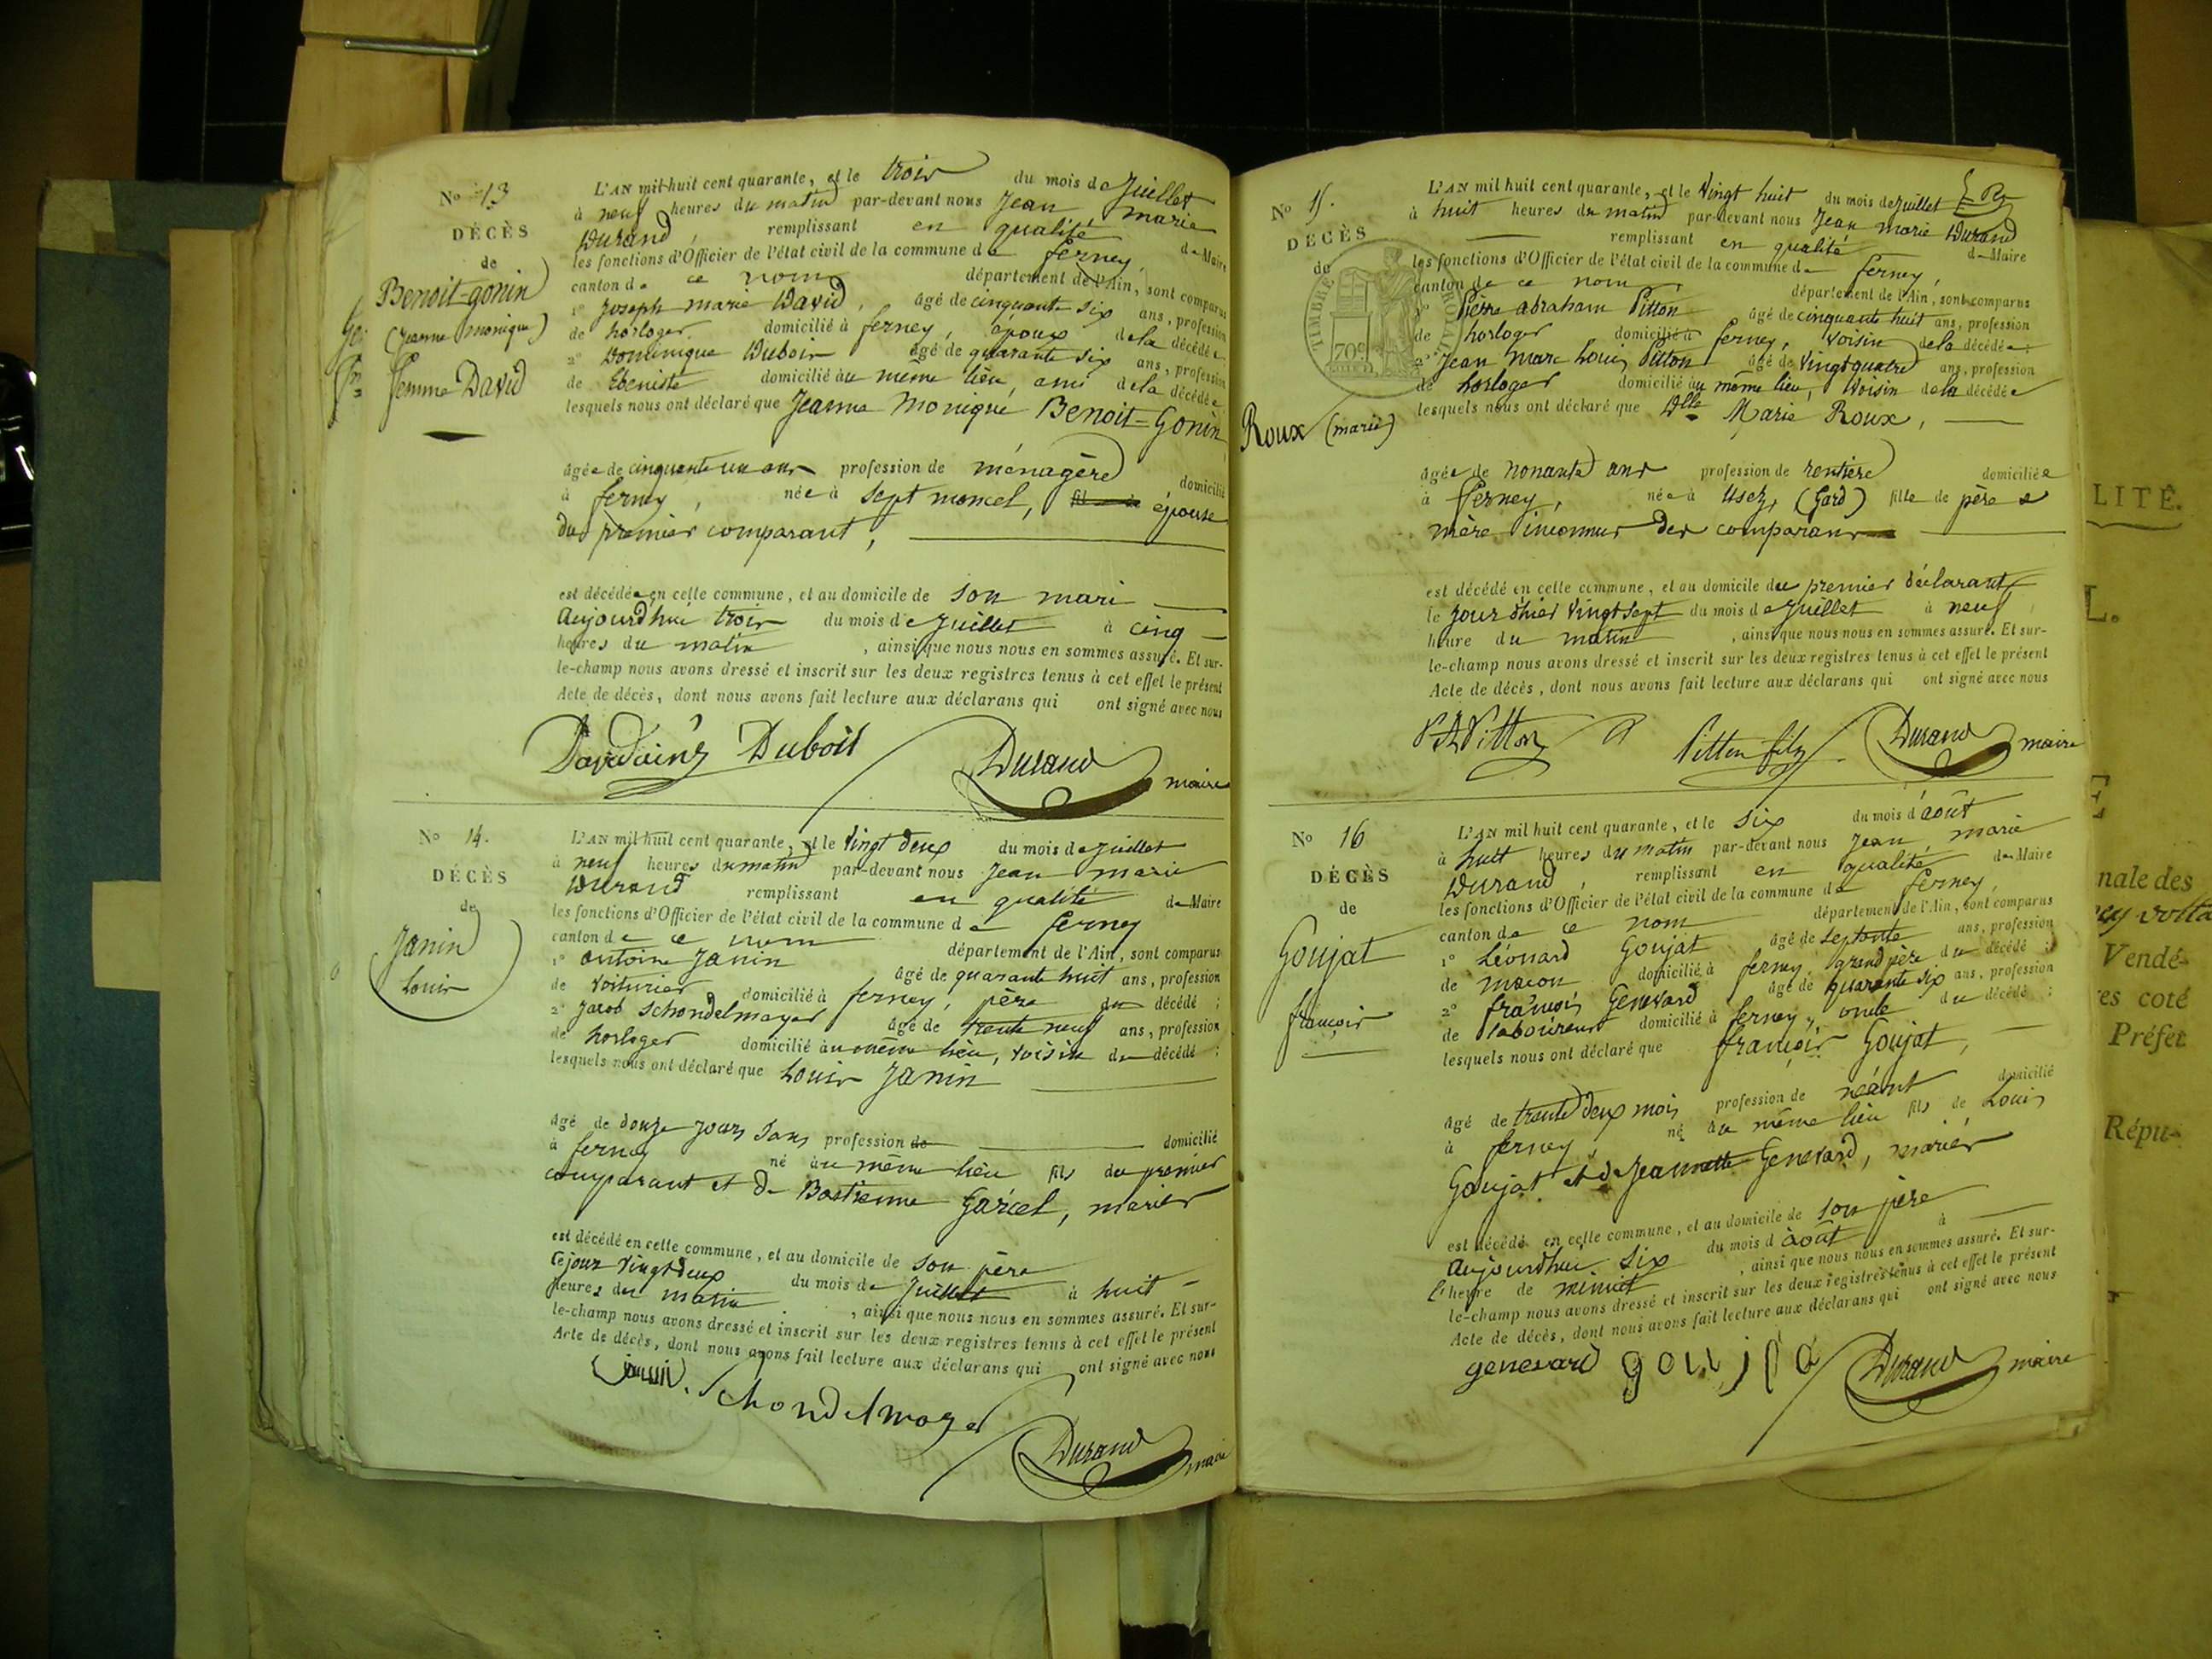 No 13
DÉCÈS
de
Benoit-gonin
(Jeanne monique)
femme David
L'AN mil-huit cent quarante, et le trois du mois de Juillet
à neuf heures du matin par-devant nous Jean marie
Durand, remplissant en qualité de Maire
les fonctions d'Officier de l'état civil de la commune de ferney,
canton de ce nom département de l'Ain, sont comparus
1° Joseph marie David, âgé de cinquante six ans, profession
de horloger domicilié à ferney, époux de la décédée
2° Dominique Dubois âgé de quarante six ans, profession
de Ebeniste domicilié au meme lieu, ami de la décédée
lesquels nous ont déclaré que Jeanne Monique Benoit=Gonin
âgée de cinquante un ans profession de ménagère domicilié
à ferney, née à Sept moncel, épouse
du premier comparant,
est décédée en celle commune, et au domicile de son mari
Aujourd'hui trois du mois de Juillet à cinq
heures du matin, ainsi que nous nous en sommes assuré. Et sur-
le-champ nous avons dressé et inscrit sur les deux registres tenus à cet effet le présent
Acte de décès, dont nous avons fait lecture aux déclarans qui ont signé avec nous
David ainé Dubois Durand maire
No 14.
DÉCÈS
de
Janin
Louis
L'AN mil-huit cent quarante, et le Vingt deux du mois de Juillet
à neuf heures du matin par-devant nous Jean marie
Durand remplissant en qualité de Maire
les fonctions d'Officier de l'état civil de la commune de ferney
canton de ce nom département de l'Ain, sont comparus
1° antoine Janin âgé de quarante huit ans, profession
de Voiturier domicilié à ferney, père du décédé ;
2° Jacob Schondelmayer âgé de trente neuf ans, profession
de horloger domicilié au même lieu, voisin du décédé :
lesquels nous ont déclaré que Louis Janin
âgé de douze jours Sans profession de domicilié
à ferney né au même lieu fils du premier
comparant et de Bastienne Garcel, mariés
est décédé en celle commune, et au domicile de son père
Ce jour Vingt deux du mois de Juillet à huit
heures du matin, ainsi que nous nous en sommes assuré. Et sur-
le-champ nous avons dressé et inscrit sur les deux registres tenus à cet effet le présent
Acte de décès, dont nous avons fait lecture aux déclarans qui ont signé avec nous
janin. Schondelmayer
Durand maire
No 15.
DÉCÈS
de
Roux (marie)
TIMBRE ROYAL
70c
L'AN mil huit cent quarante, et le Vingt huit du mois de Juillet
à huit heures du matin par-devant nous Jean Marie Durand
remplissant en qualité de Maire
les fonctions d'Officier de l'état civil de la commune de ferney,
canton de ce nom, département de l'Ain, sont comparus
1° Pierre abraham Pitton âgé de cinquante huit ans, profession
de horloger domicilié à ferney, Voisin de la décédée :
2° Jean Marc Louis Pitton âgé de Vingt quatre ans, profession
de horloger domicilié au même lieu, Voisin de la décédée
lesquels nous ont déclaré que Dlle Marie Roux,
âgée de nonante ans profession de rentière domiciliée
à ferney, née à Usez, (Gard) fille de père e
mère inconnus des comparans
est décédé en celle commune, et au domicile du premier déclarant
le jour d'hier Vingt Sept du mois de Juillet à neuf
heure du matin, ainsi que nous nous en sommes assuré. Et sur-
le-champ nous avons dressé et inscrit sur les deux registres tenus à cet effet le présent
Acte de décès, dont nous avons fait lecture aux déclarans qui ont signé avec nous
P A Pitton Pitton fils Durand maire
No 16
DÉCÈS
de
Goujat
françois
L'AN mil huit cent quarante, et le Six du mois d'août
à huit heures du matin par-devant nous Jean marie
Durand, remplissant en qualité de Maire
les fonctions d'Officier de l'état civil de la commune de ferney,
canton de ce nom département de l'Ain, sont comparus
1° Léonard Goujat âgé de septante ans, profession
de macon domicilié à ferney, grand père du décédé ;
2° françois Genevard âgé de quarante six ans, profession
de laboureur domicilié à ferney, oncle du décédé :
lesquels nous ont déclaré que françois Goujat,
âgé de trente deux mois profession de néant domicilié
à ferney, né au même lieu fils de Louis
Goujat et de Jeannette Genevard, mariés
est décédé en celle commune, et au domicile de son père
Aujourd'hui Six du mois d'août à
l'heure de minuit, ainsi que nous nous en sommes assuré. Et sur-
le-champ nous avons dressé et inscrit sur les deux registres tenus à cet effet le présent
Acte de décès, dont nous avons fait lecture aux déclarans qui ont signé avec nous
genevard goujta Durand maire
LITÉ.
L.
E
nale des
Vendé-
res coté
Préfet
Répu-